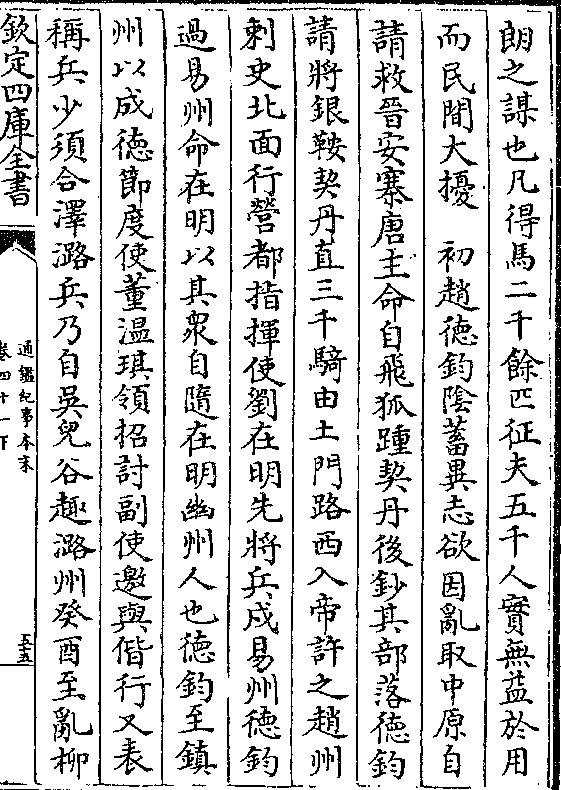 朗之謀也凡得馬二千餘匹征夫五千人實無益於用
而民間大擾　初趙徳鈞陰蓄異志欲因亂取中原自
請救晉安寨唐主命自飛狐踵契丹後鈔其部落徳鈞
請將銀鞍契丹直三千騎由土門路西入帝許之趙州
刺史北面行營都指揮使劉在明先將兵戍易州徳鈞
過易州命在明以其衆自隨在明幽州人也徳鈞至鎮
州以成徳節度使董温琪領招討副使邀與偕行又表
稱兵少須合澤潞兵乃自吳兒谷趣潞州癸酉至亂柳
欽定四庫全書
通鑑紀事本末
卷四十一下
五十五